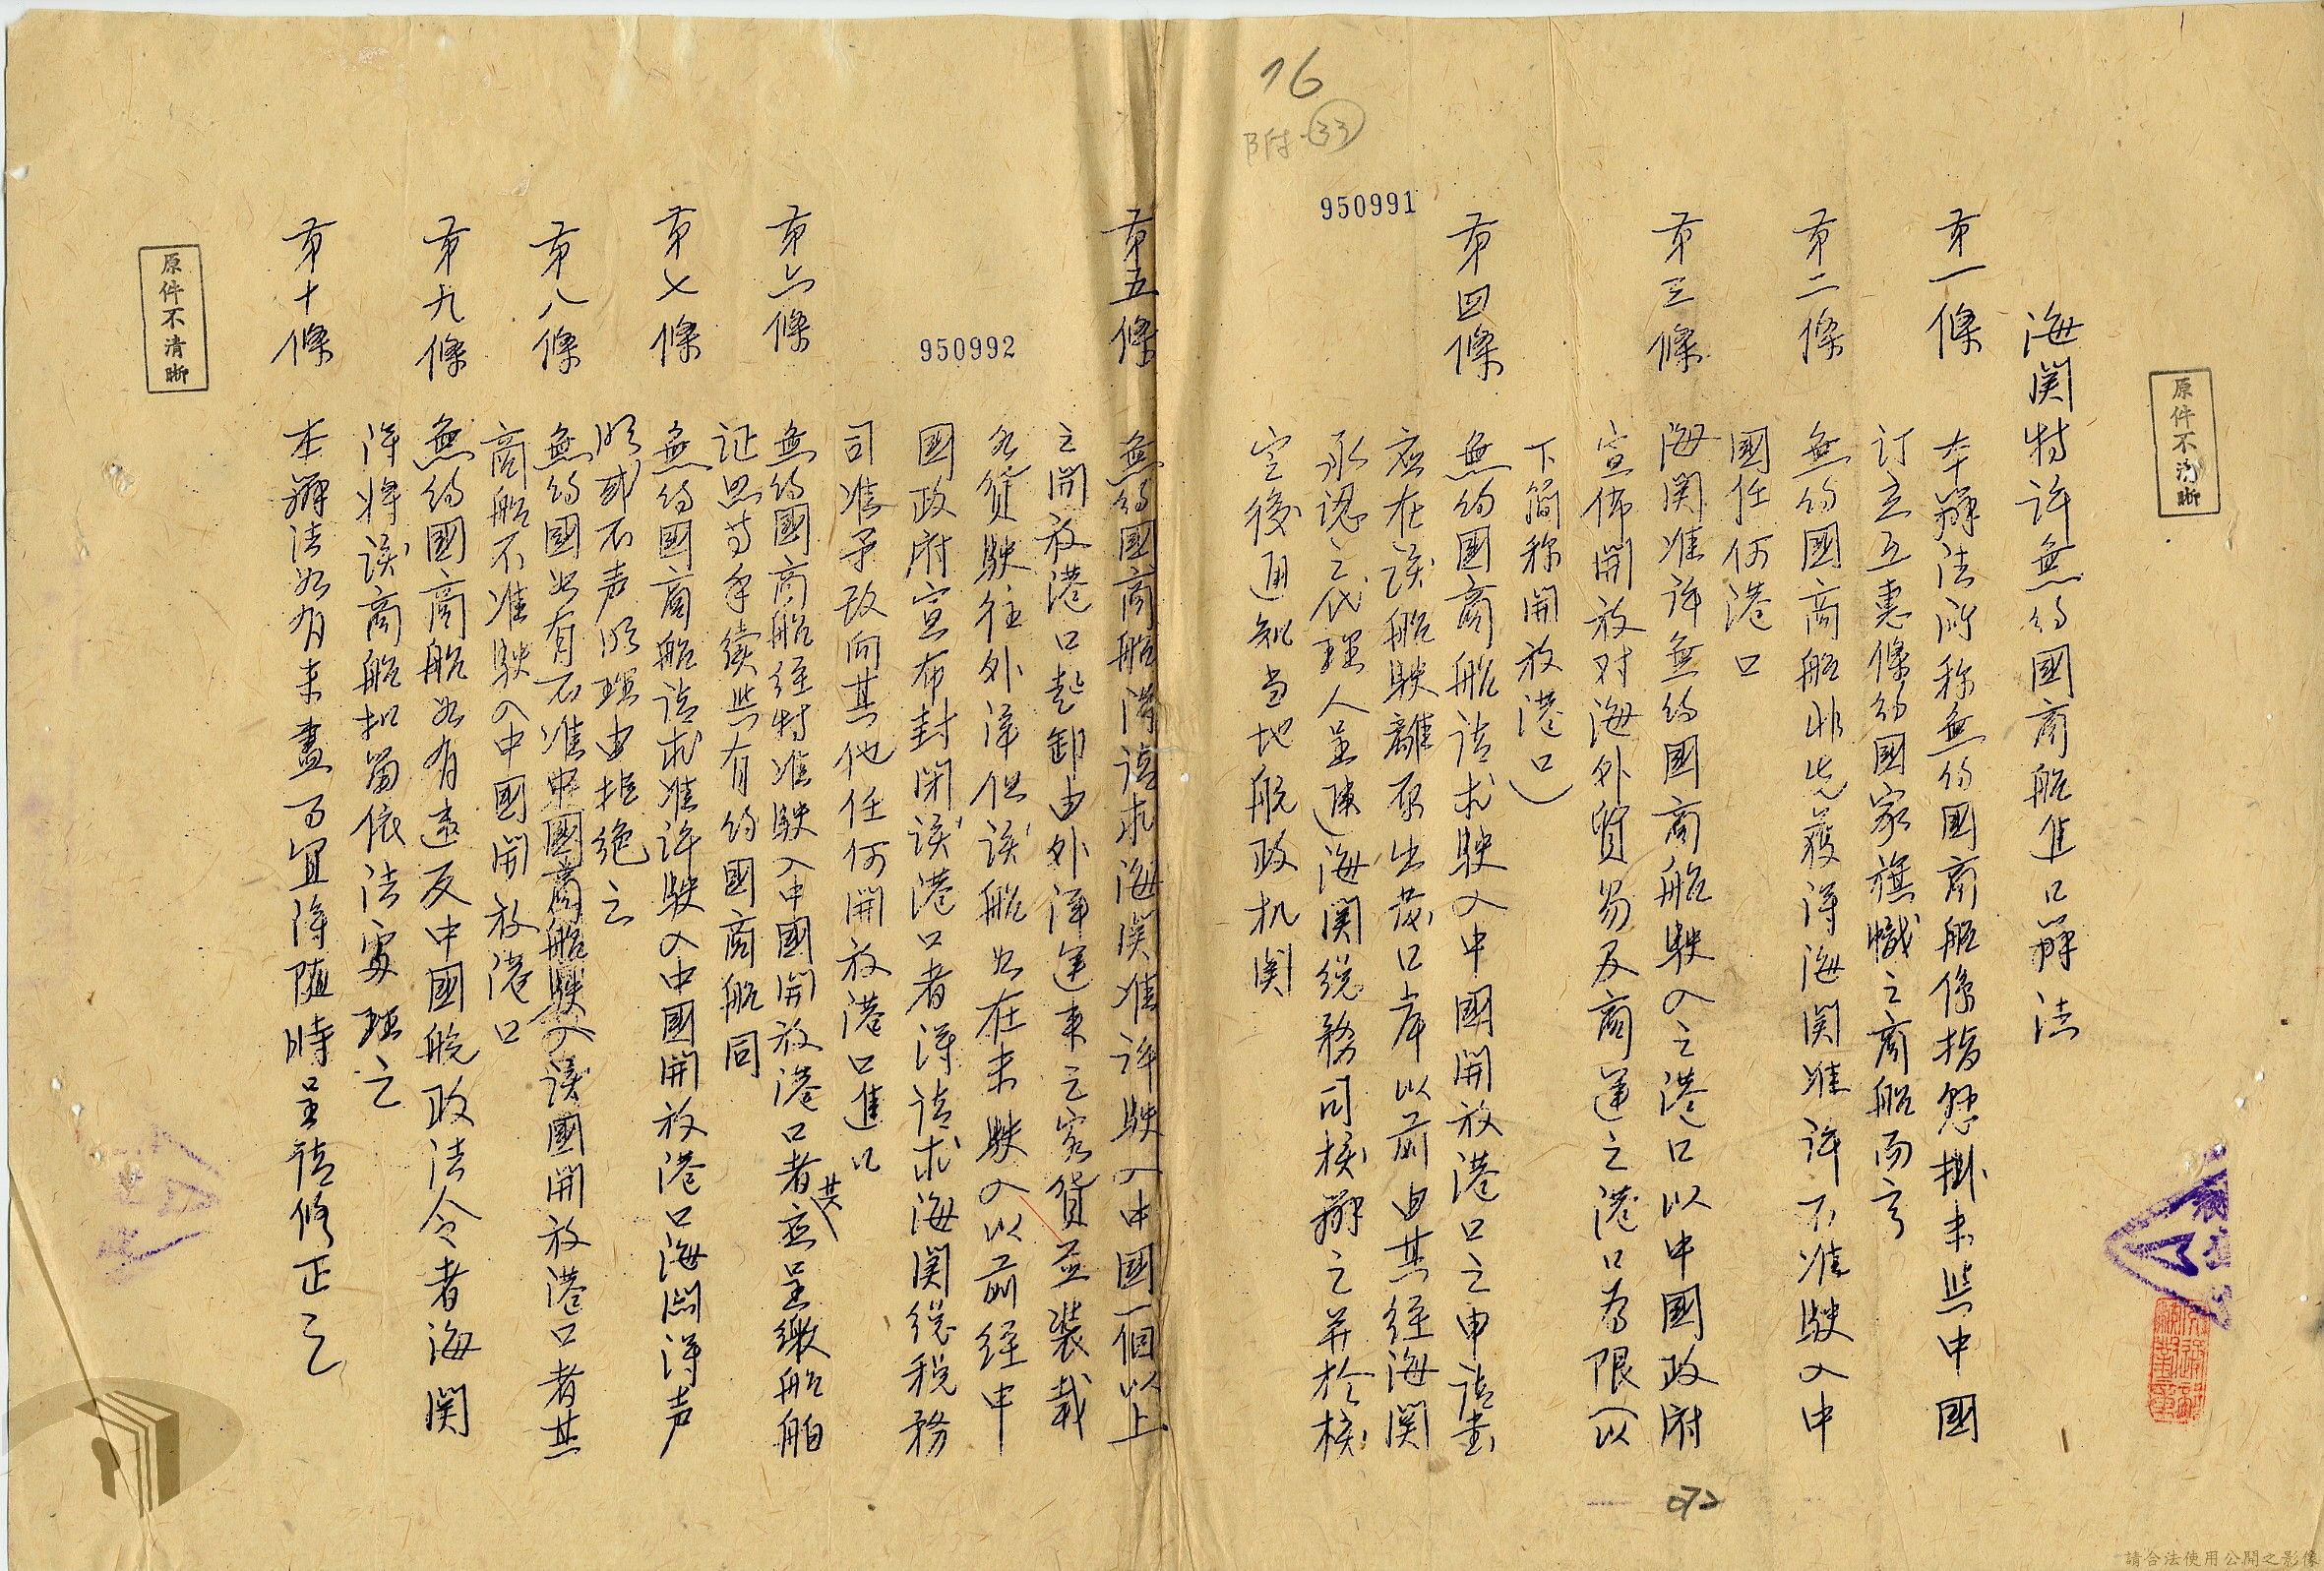 原件不清晰
海関特許無約國商船進口辦法
第一條 本辦法所称無約國商船係指懸掛未與中國
訂立互惠條約國家旗幟之商船而言
第二條 無約國商船非先獲得海関准許不准駛入中
國任何港口
第三條 海関准許無約國商船駛入之港口以中國政府
宣佈開放对海外貿易及商運之港口為限(以
下簡称開放港口)
第四條 無約國商船請求駛入中國開放港口之申請書
应在該船駛離原出發口岸以前由其經海関
承認之代理人呈(陳)海関総務司核辦之并於核
定後通知当地航政机関
950991
16
附 33
072
第五條 無約國商船得請求海関准許駛入中國一個以上
之開放港口起卸由外洋運來之客貨並裝載
客貨駛往外洋但該船如在未駛入以前經中
國政府宣布封閉該港口者得請求海関総税務
司准予改向其他任何開放港口進口
950992
第六條 無約國商船經特准駛入中國開放港口者其应呈繳船舶
证照等手續與有約國商船同
第七條 無約國商船請求准許駛入中國開放港口海関得声
明或不声明理由拒絶之
第八條 無約國如有不准中國商船駛入該國開放港口者其
商船不准駛入中國開放港口
第九條 無約國商船如有違反中國航政法令者海関
得将該商船扣留依法處理之
第十條 本辦法如有未盡事宜得随時呈請修正之
原件不清晰
請合法使用公開之影像